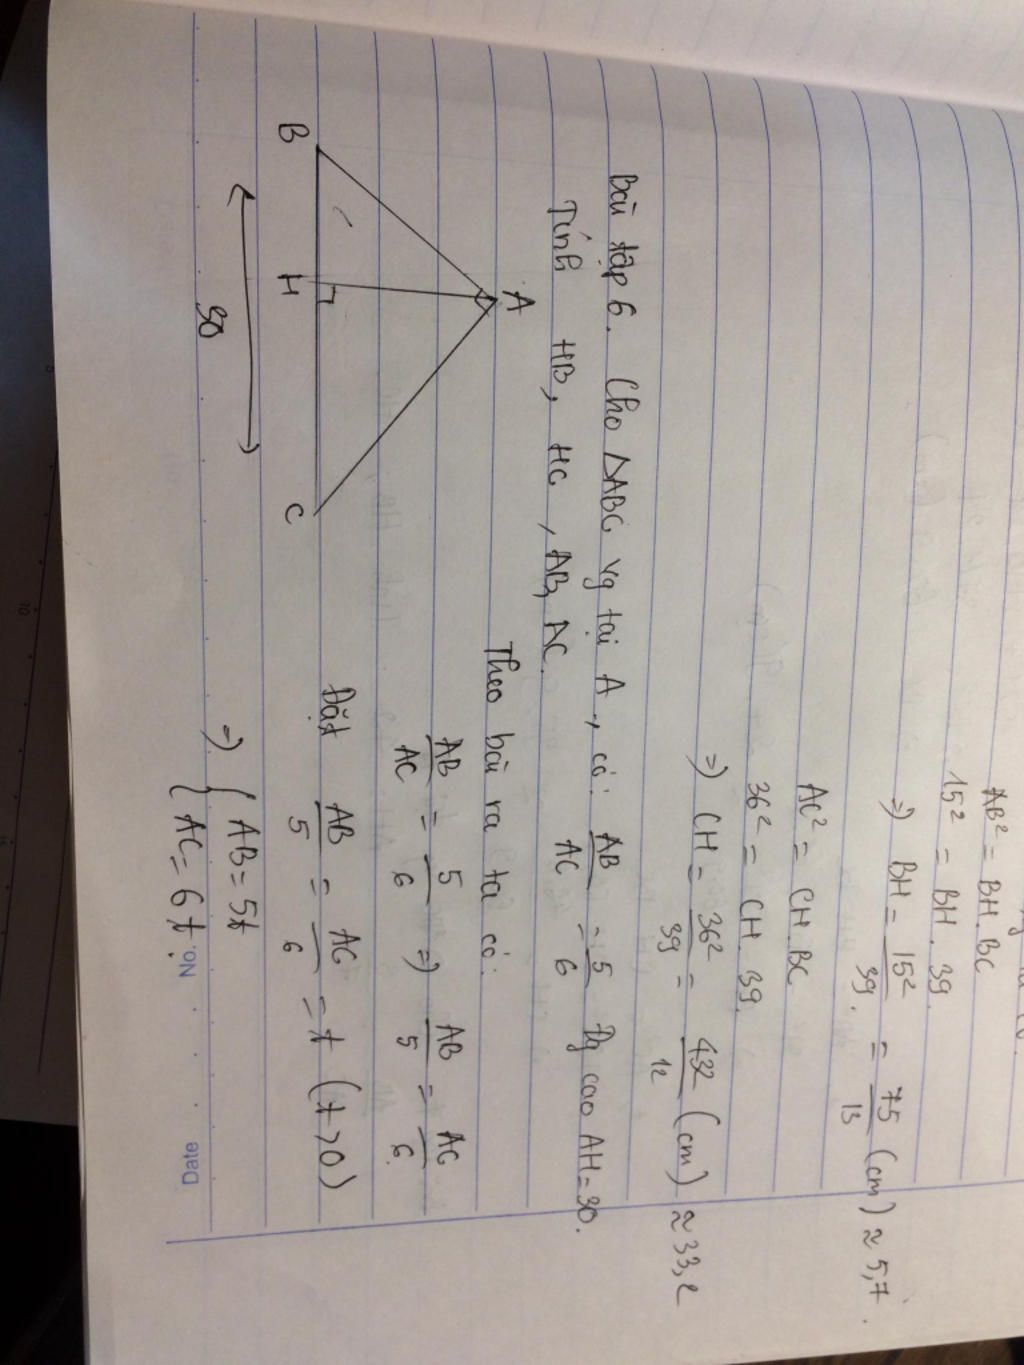 AB² = BH.BC
15² = BH. 39.
=) BH = 15²/39. = 75/13 (cm) ≈ 5,7.
AC² = CH.BC
36² = CH.39.
=) CH = 36²/39 = 432/12 (cm) ≈ 33,2
Bài tập 6. Cho ΔABC vg tại A, có: AB/AC = 5/6 Đg cao AH=30.
Tính HB, HC, AB, AC.
Theo bài ra ta có:
AB/AC = 5/6 =) AB/5 = AC/6.
Đặt AB/5 = AC/6 = t (t>0)
=) { AB = 5t
AC = 6t.
A
B
H
C
30
No.
Date